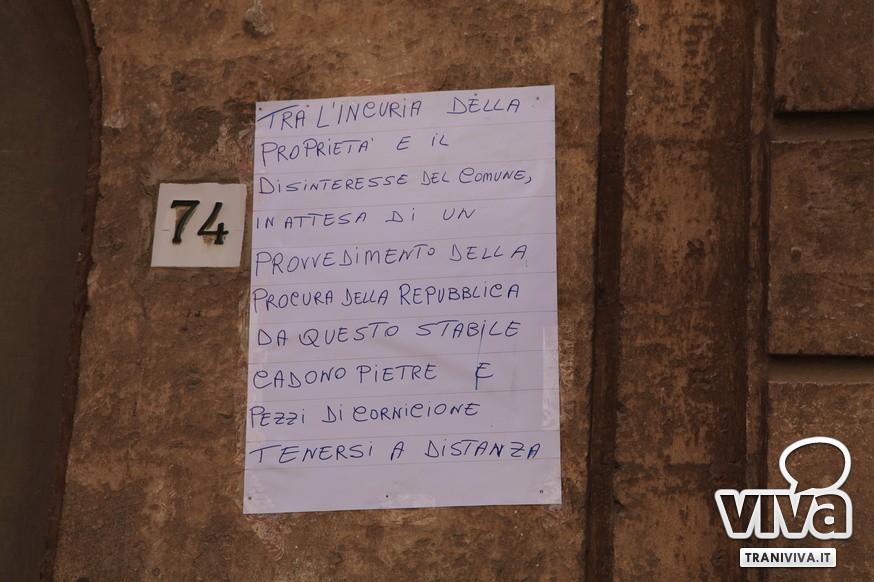 TRA L'INCURIA DELLA
PROPRIETA' E IL
DISINTERESSE DEL COMUNE,
IN ATTESA DI UN
PROVVEDIMENTO DELLA
PROCURA DELLA REPUBBLICA
DA QUESTO STABILE
CADONO PIETRE E
PEZZI DI CORNICIONE
TENERSI A DISTANZA
74
viva
TRANIVIVA.IT